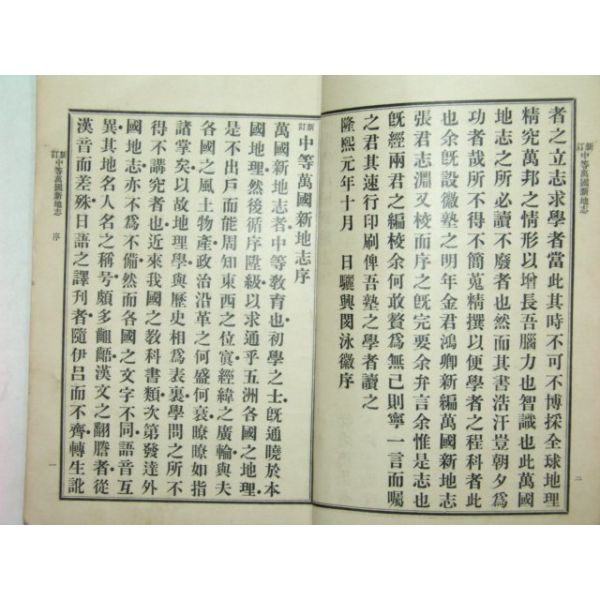 新訂中等萬國新地志
二
者之立志求學者當此其時不可不博採全球地理
精究萬邦之情形以增長吾腦力也智識也此萬國
地志之所必讀不廢者也然而其書浩汗豈朝夕爲
功者哉所不得不簡蒐精撰以便學者之程科者此
也余旣設徽塾之明年金君鴻卿新編萬國新地志
張君志淵又校而序之旣完要余弁言余惟是志也
旣經兩君之編校余何敢贅爲無已則寧一言而囑
之君其速行印刷俾吾塾之學者讀之
隆熙元年十月 日驪興閔泳徽序
新訂中等萬國新地志序
萬國新地志者中等教育也初學之士旣通曉於本
國地理然後循序陞級以求通乎五洲各國之地理
是不出戶而能周知東西之位寘經緯之廣輪與夫
各國之風土物產政治沿革之何盛何衰瞭瞭如指
諸掌矣以故地理學與歷史相爲表裏學問之所不
得不講究者也近來我國之敎科書類次第發達外
國地志亦不爲不備然而各國之文字不同語音互
異其地名人名之稱號頗多齟齬漢文之翻謄者從
漢音而差殊日語之譯刊者隨伊呂而不齊轉生訛
新訂中等萬國新地志 序
一